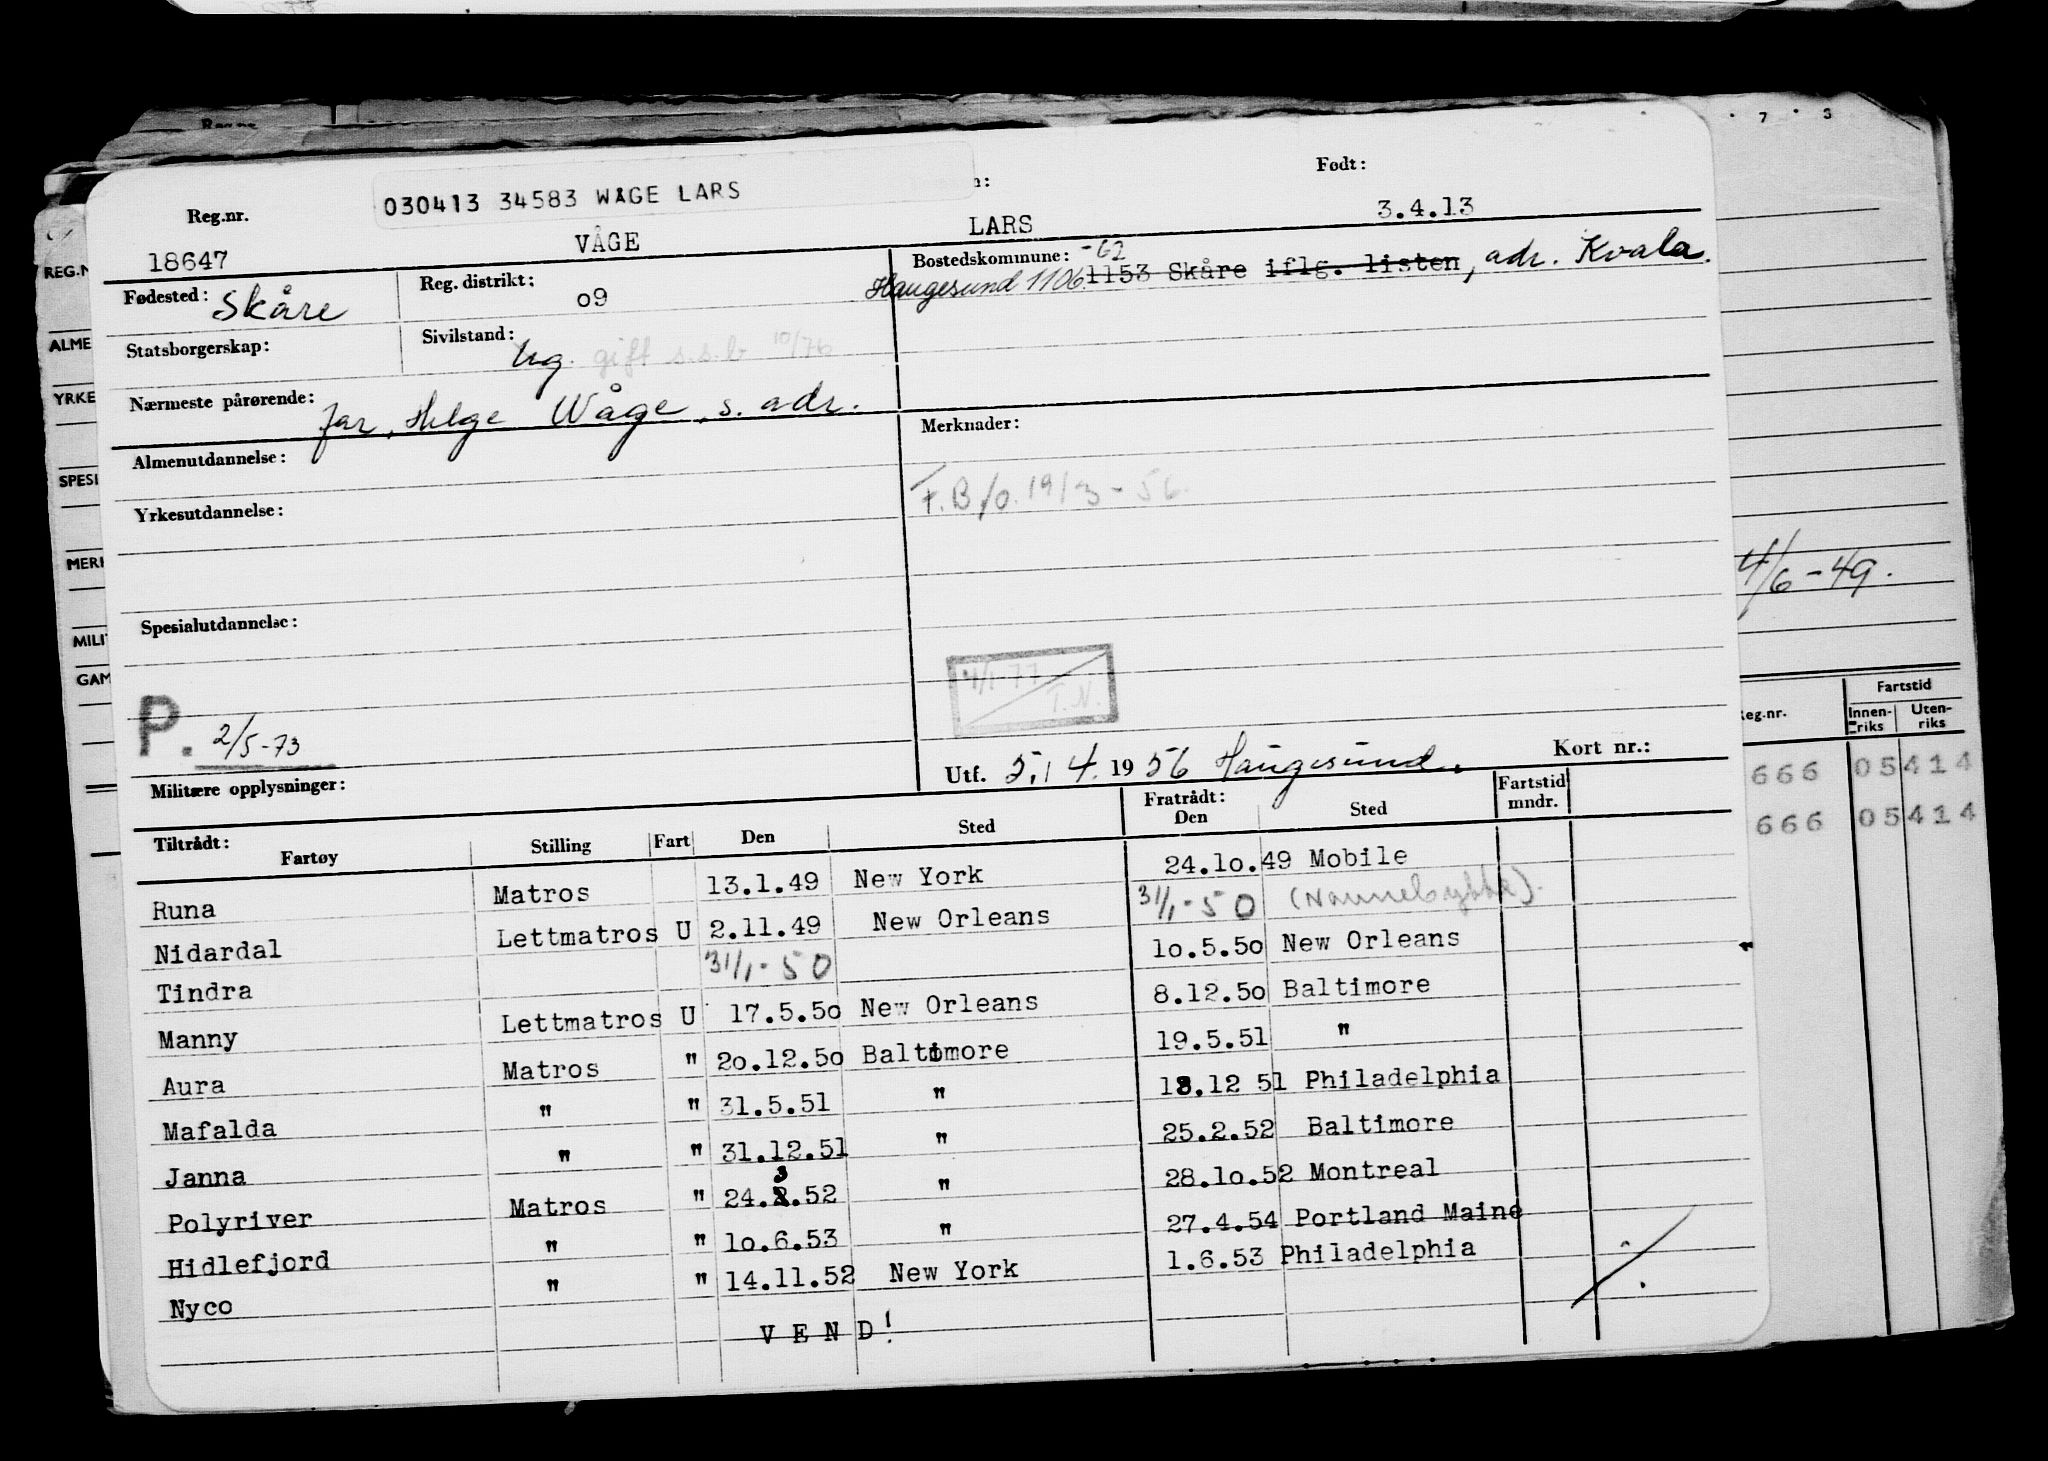 7 . 3
030413 34583 WÅGE LARS
Født:
Reg.nr.
18647
VÅGE
LARS
3.4.13
Fødested: Skåre
Reg. distrikt: o9
Bostedskommune: -62
Haugesund 1106. 1153 Skåre iflg. listen, adr. Kvala.
Statsborgerskap:
Sivilstand: Ug. gift s.s.b 10/76
Nærmeste pårørende: far, Helge Wåge, s. adr.
Almenutdannelse:
Merknader:
F.B/o. 19/3-56.
Yrkesutdannelse:
Spesialutdannelse:
4/1-77 T.N.
P. 2/5-73
Militære opplysninger:
Utf. 5.4.1956 Haugesund.
Kort nr.:
Tiltrådt: Fartøy Stilling Fart Den Sted Fratrådt: Den Sted Fartstid mndr.
Runa Matros 13.1.49 New York 24.1o.49 Mobile
Nidardal Lettmatros U 2.11.49 New Orleans 31/1-50
Tindra 31/1-50 1o.5.5o New Orleans
Manny Lettmatros U 17.5.5o New Orleans 8.12.5o Baltimore
Aura Matros " 2o.12.5o Baltimore 19.5.51 "
Mafalda " " 31.5.51 " 18.12 51 Philadelphia
Janna " " 31.12.51 " 25.2.52 Baltimore
Polyriver Matros " 24.3.52 " 28.1o.52 Montreal
Hidlefjord " " 1o.6.53 " 27.4.54 Portland Maine
Nyco " " 14.11.52 New York 1.6.53 Philadelphia
V E N D!
REG.N
ALME
YRKE
SPESI
MERK
MILIT
GAM
4/6-49.
Reg.nr.
Fartstid
Innenriks
Utenriks
666 05 414
666 05 414